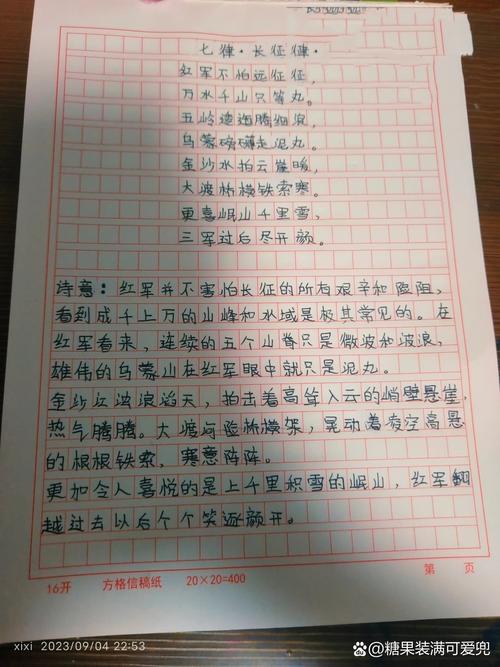 七律·长征律·
红军不怕远征征,
万水千山只等丸。
五岭逶迤腾细浪,
乌蒙磅礴走泥丸。
金沙水拍云崖暖,
大渡桥横铁索寒。
更喜岷山千里雪,
三军过后尽开颜。
诗意:红军并不害怕长征的所有艰辛和险阻,
看到成千上万的山峰和水域是极其常见的。在
红军看来,连续的五个山脊只是微波和波浪,
雄伟的乌蒙山在红军眼中就只是泥丸。
金沙江波浪滔天,拍击着高耸入云的峭壁悬崖,
热气腾腾。大渡河险桥横架,晃动着凌空高悬
的根根铁索,寒意阵阵。
更加令人喜悦的是上千里积雪的岷山,红军翻
越过去以后个个笑逐颜开。
16开 方格信稿纸 20×20=400 第 页
xixi 2023/09/04 22:53
Bai百科@糖果装满可爱兜